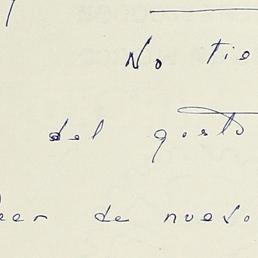 No tie
del gusto
de nuevo